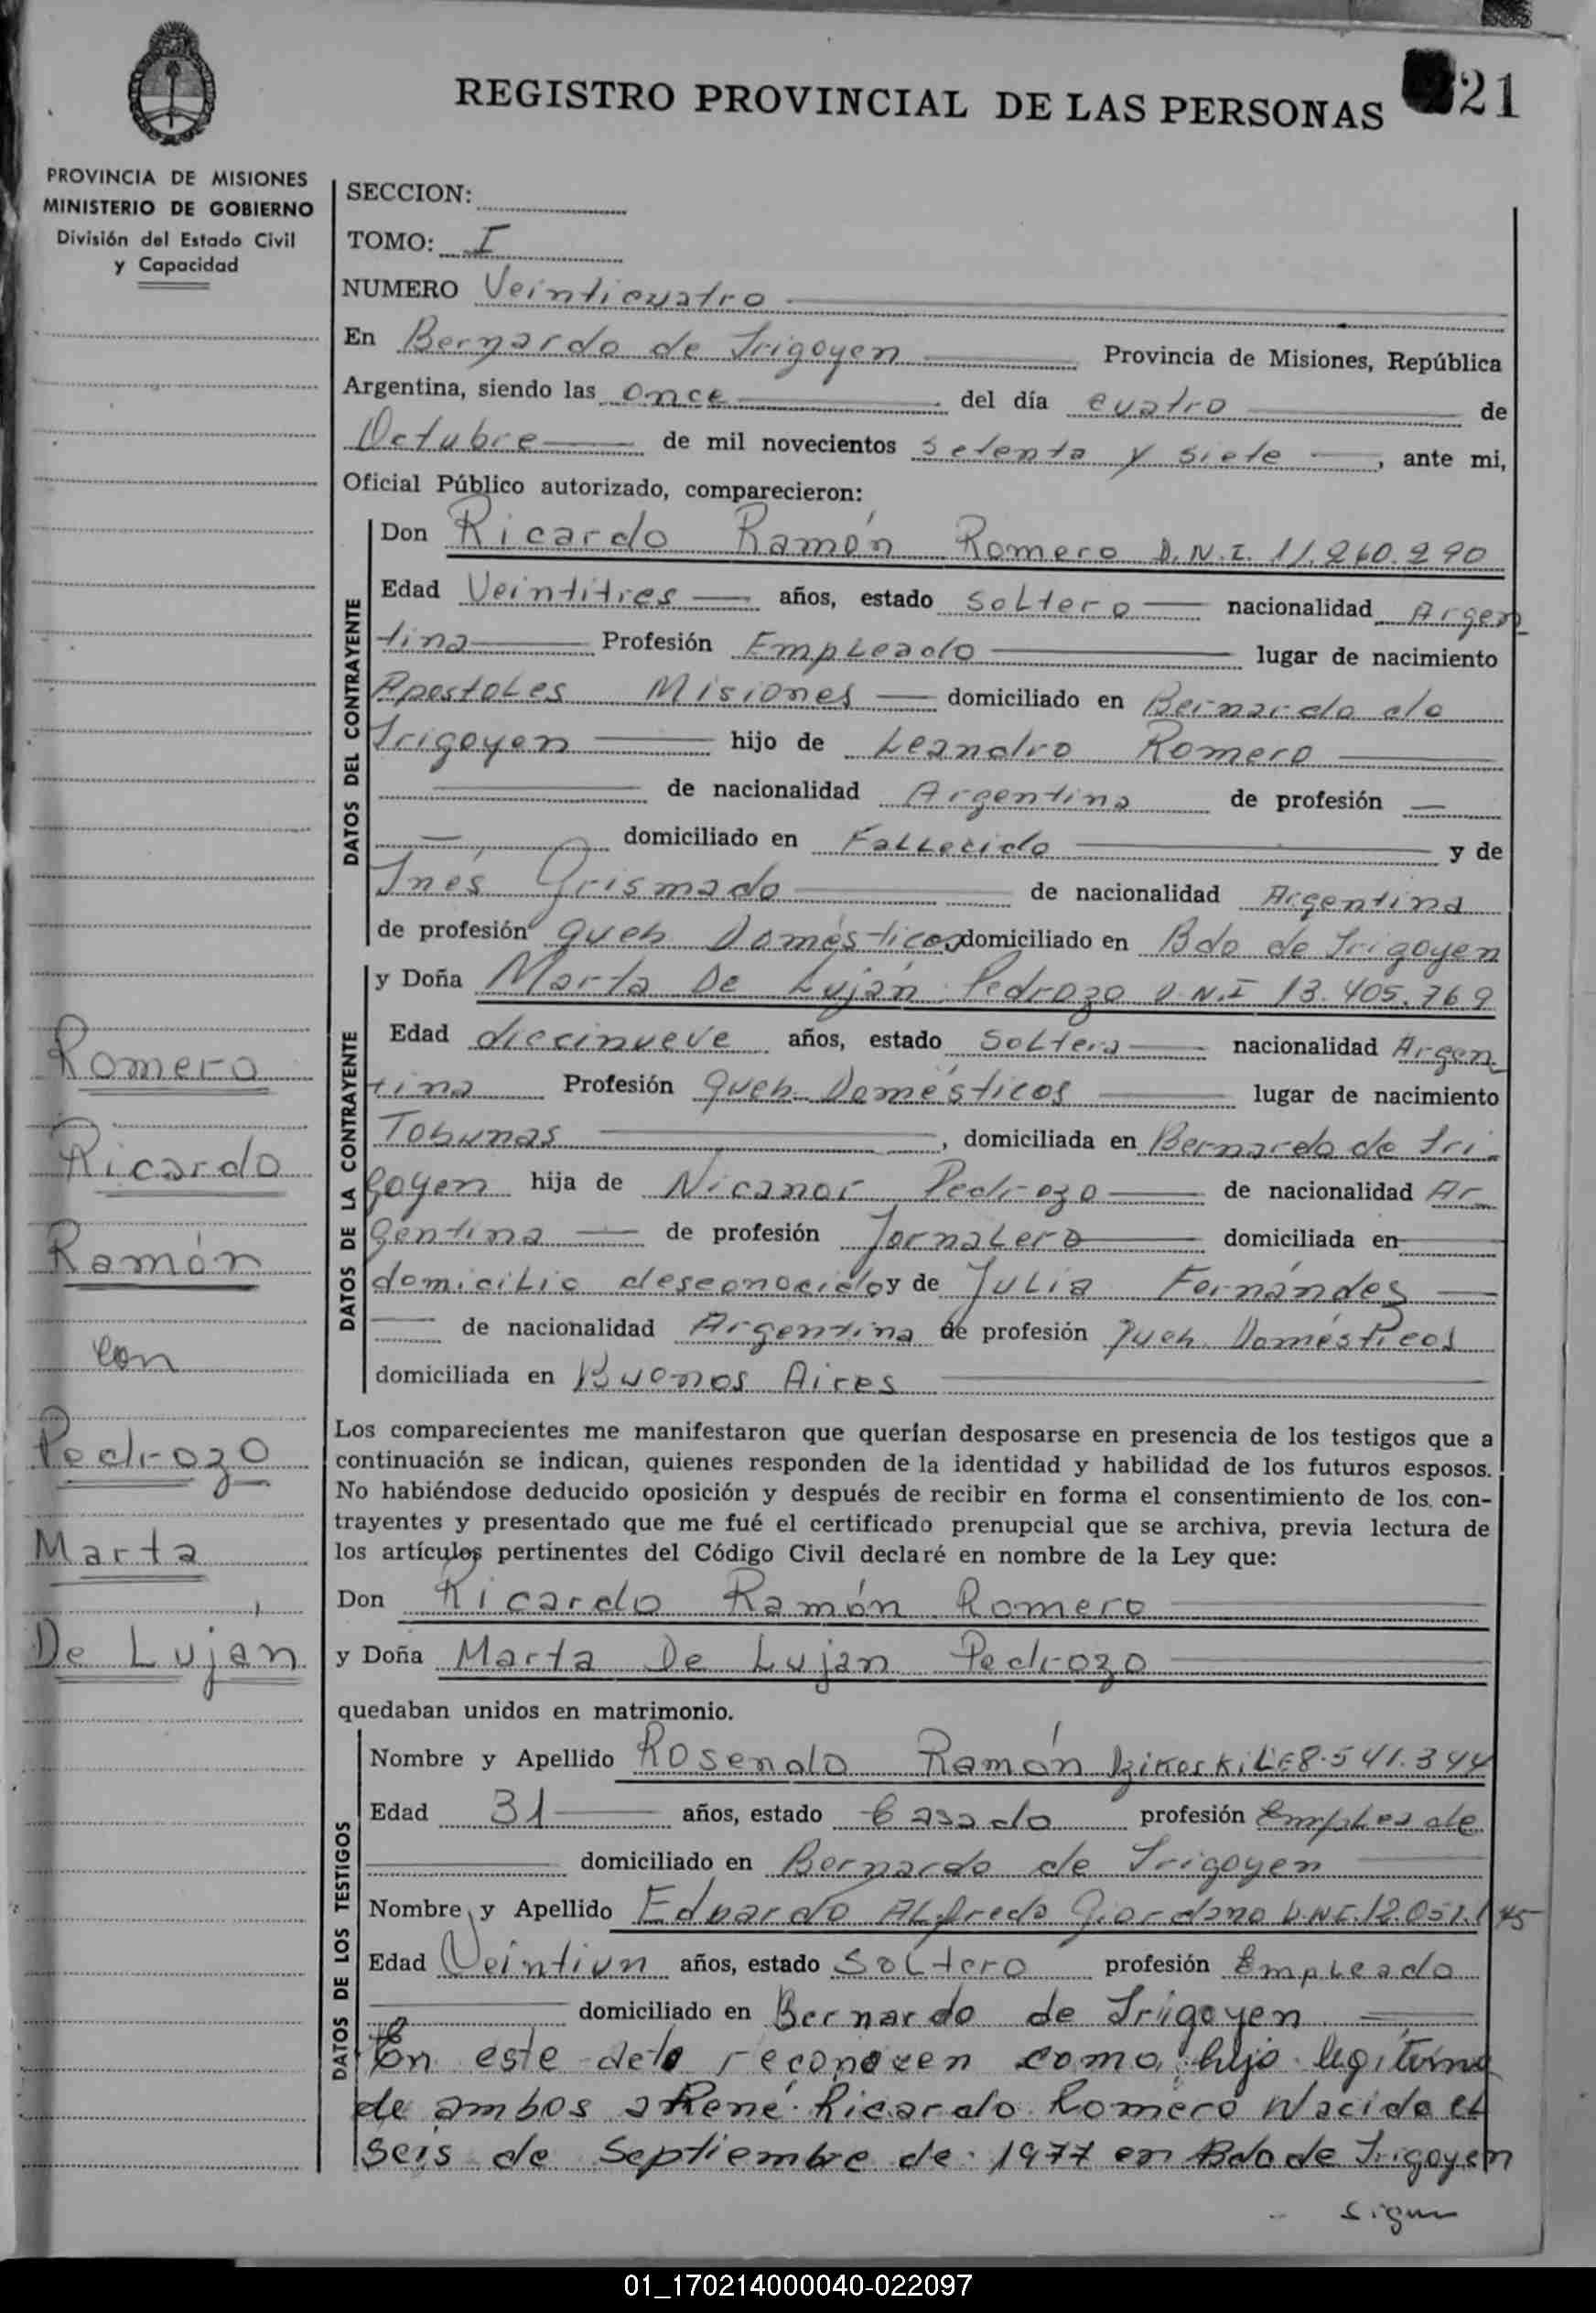 REGISTRO PROVINCIAL DE LAS PERSONAS
21
PROVINCIA DE MISIONES
MINISTERIO DE GOBIERNO
División del Estado Civil
y Capacidad
SECCION:
TOMO: I
NUMERO Veinticuatro
En Bernardo de Irigoyen Provincia de Misiones, República
Argentina, siendo las once del día cuatro de
Octubre de mil novecientos setenta y siete, ante mi,
Oficial Público autorizado, comparecieron:
DATOS DEL CONTRAYENTE
Don Ricardo Ramón Romero D.N.I. 11.260.290
Edad Veintitres años, estado soltero nacionalidad Argen
tina Profesión Empleado lugar de nacimiento
Apostoles Misiones domiciliado en Bernardo de
Irigoyen hijo de Leandro Romero
de nacionalidad Argentina de profesión —
— domiciliado en Fallecido y de
Inés Grismado de nacionalidad Argentina
de profesión queh Domésticos domiciliado en Bdo de Irigoyen
DATOS DE LA CONTRAYENTE
y Doña Marta De Luján Pedrozo D.N.I 13.405.769
Edad diecinueve años, estado soltera nacionalidad Argen
tina Profesión queh Domésticos lugar de nacimiento
Tobunas, domiciliada en Bernardo de Iri-
goyen hija de Nicanor Pedrozo de nacionalidad Ar
gentina de profesión Jornalero domiciliada en
domicilio desconocido y de Julia Fernández
de nacionalidad Argentina de profesión queh Domésticos
domiciliada en Buenos Aires
Romero
Ricardo
Ramón
con
Pedrozo
Marta
De Luján
Los comparecientes me manifestaron que querían desposarse en presencia de los testigos que a
continuación se indican, quienes responden de la identidad y habilidad de los futuros esposos.
No habiéndose deducido oposición y después de recibir en forma el consentimiento de los con-
trayentes y presentado que me fué el certificado prenupcial que se archiva, previa lectura de
los artículos pertinentes del Código Civil declaré en nombre de la Ley que:
Don Ricardo Ramón Romero
y Doña Marta De Luján Pedrozo
quedaban unidos en matrimonio.
DATOS DE LOS TESTIGOS
Nombre y Apellido Rosendo Ramón L.E 8.541.344
Edad 31 años, estado Casado profesión Empleado
domiciliado en Bernardo de Irigoyen
Nombre y Apellido Eduardo Alfredo Giordano D.N.I. 12.051.145
Edad Veintiun años, estado Soltero profesión Empleado
domiciliado en Bernardo de Irigoyen
En este acto reconocen como hijo legítimo
de ambos a René Ricardo Romero Nacido el
seis de Septiembre de 1977 en Bdo de Irigoyen
sigue
01_170214000040-022097